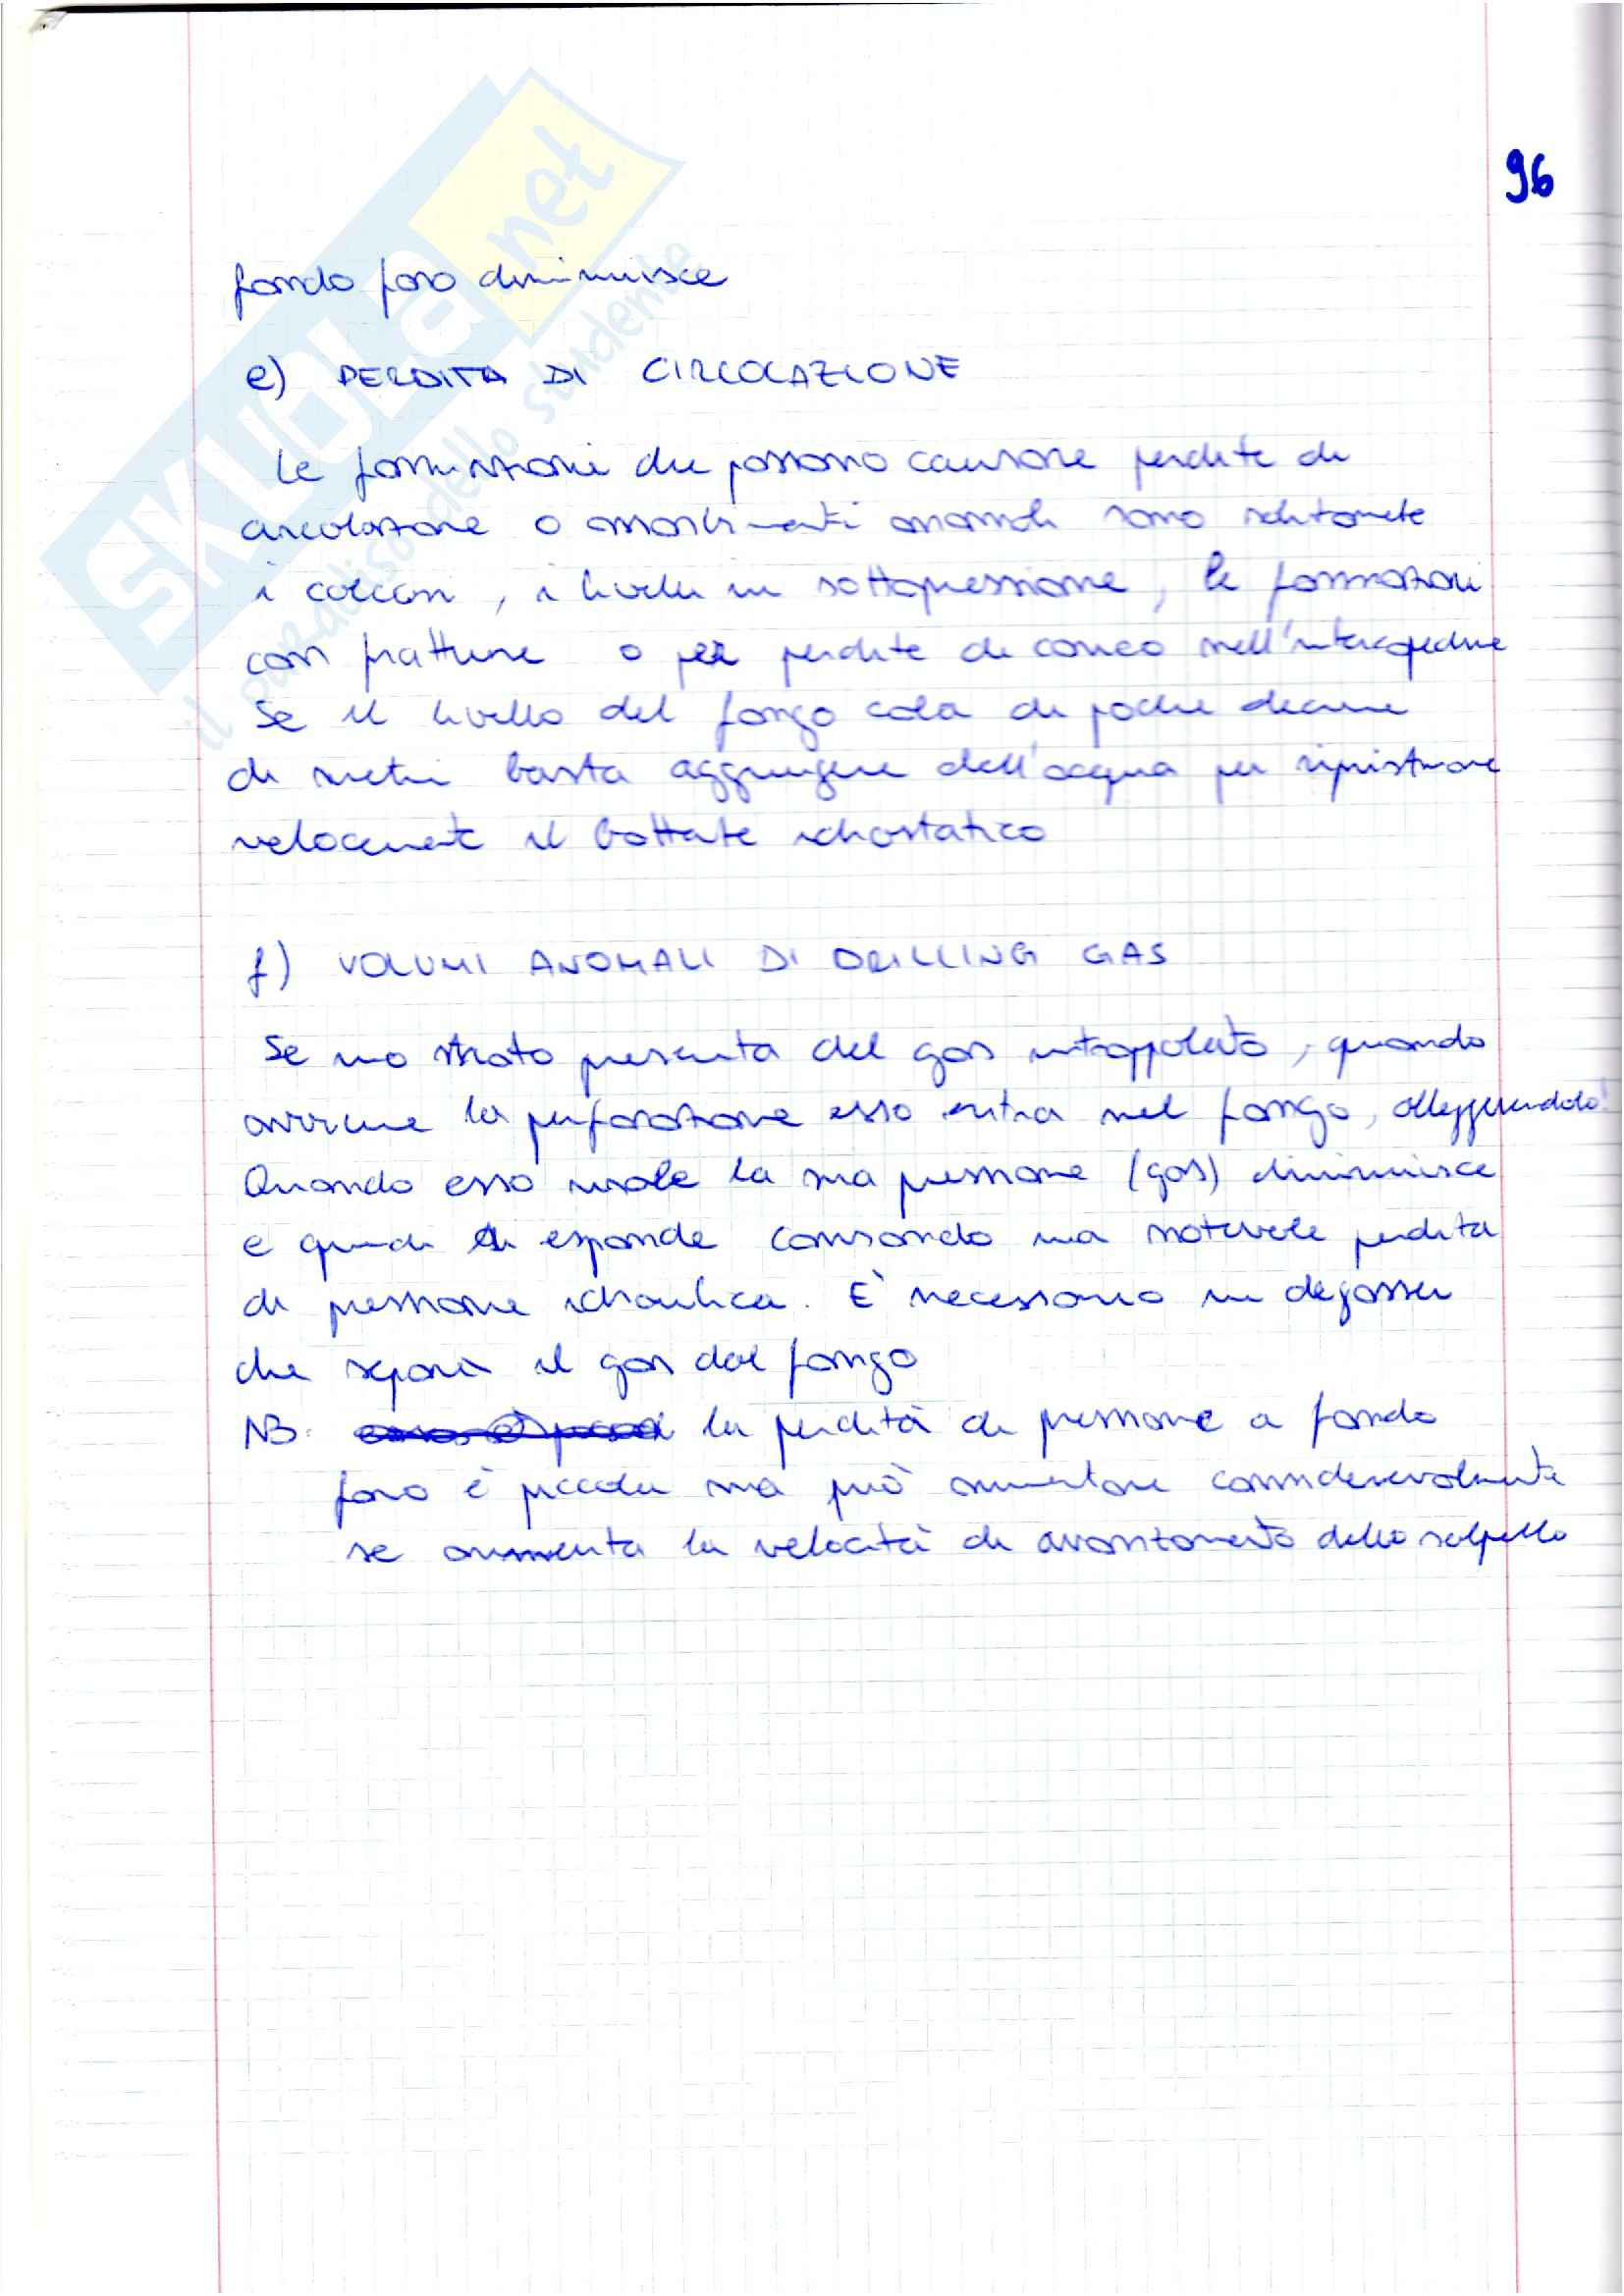 96
SKUOLA.net
il paradiso dello studente
fondo foro diminuisce
e) PERDITA DI CIRCOLAZIONE
Le formazioni che possono causare perdite di
circolazione o assorbimenti anomali sono solitamente
i calcari, i livelli in sottopressione, le formazioni
con fratture o per perdite di carico nell'intercapedine
Se il livello del fango cala di poche decine
di metri basta aggiungere dell'acqua per ripristinare
velocemente il battente idrostatico
f) VOLUMI ANOMALI DI DRILLING GAS
Se uno strato presenta del gas intrappolato, quando
avviene la perforazione esso entra nel fango, alleggerendolo
Quando esso risale la sua pressione (gas) diminuisce
e quindi si espande causando una notevole perdita
di pressione idraulica. È necessario un degasser
che separi il gas dal fango
NB: la perdita di pressione a fondo
foro è piccola ma può aumentare considerevolmente
se aumenta la velocità di avanzamento dello scalpello